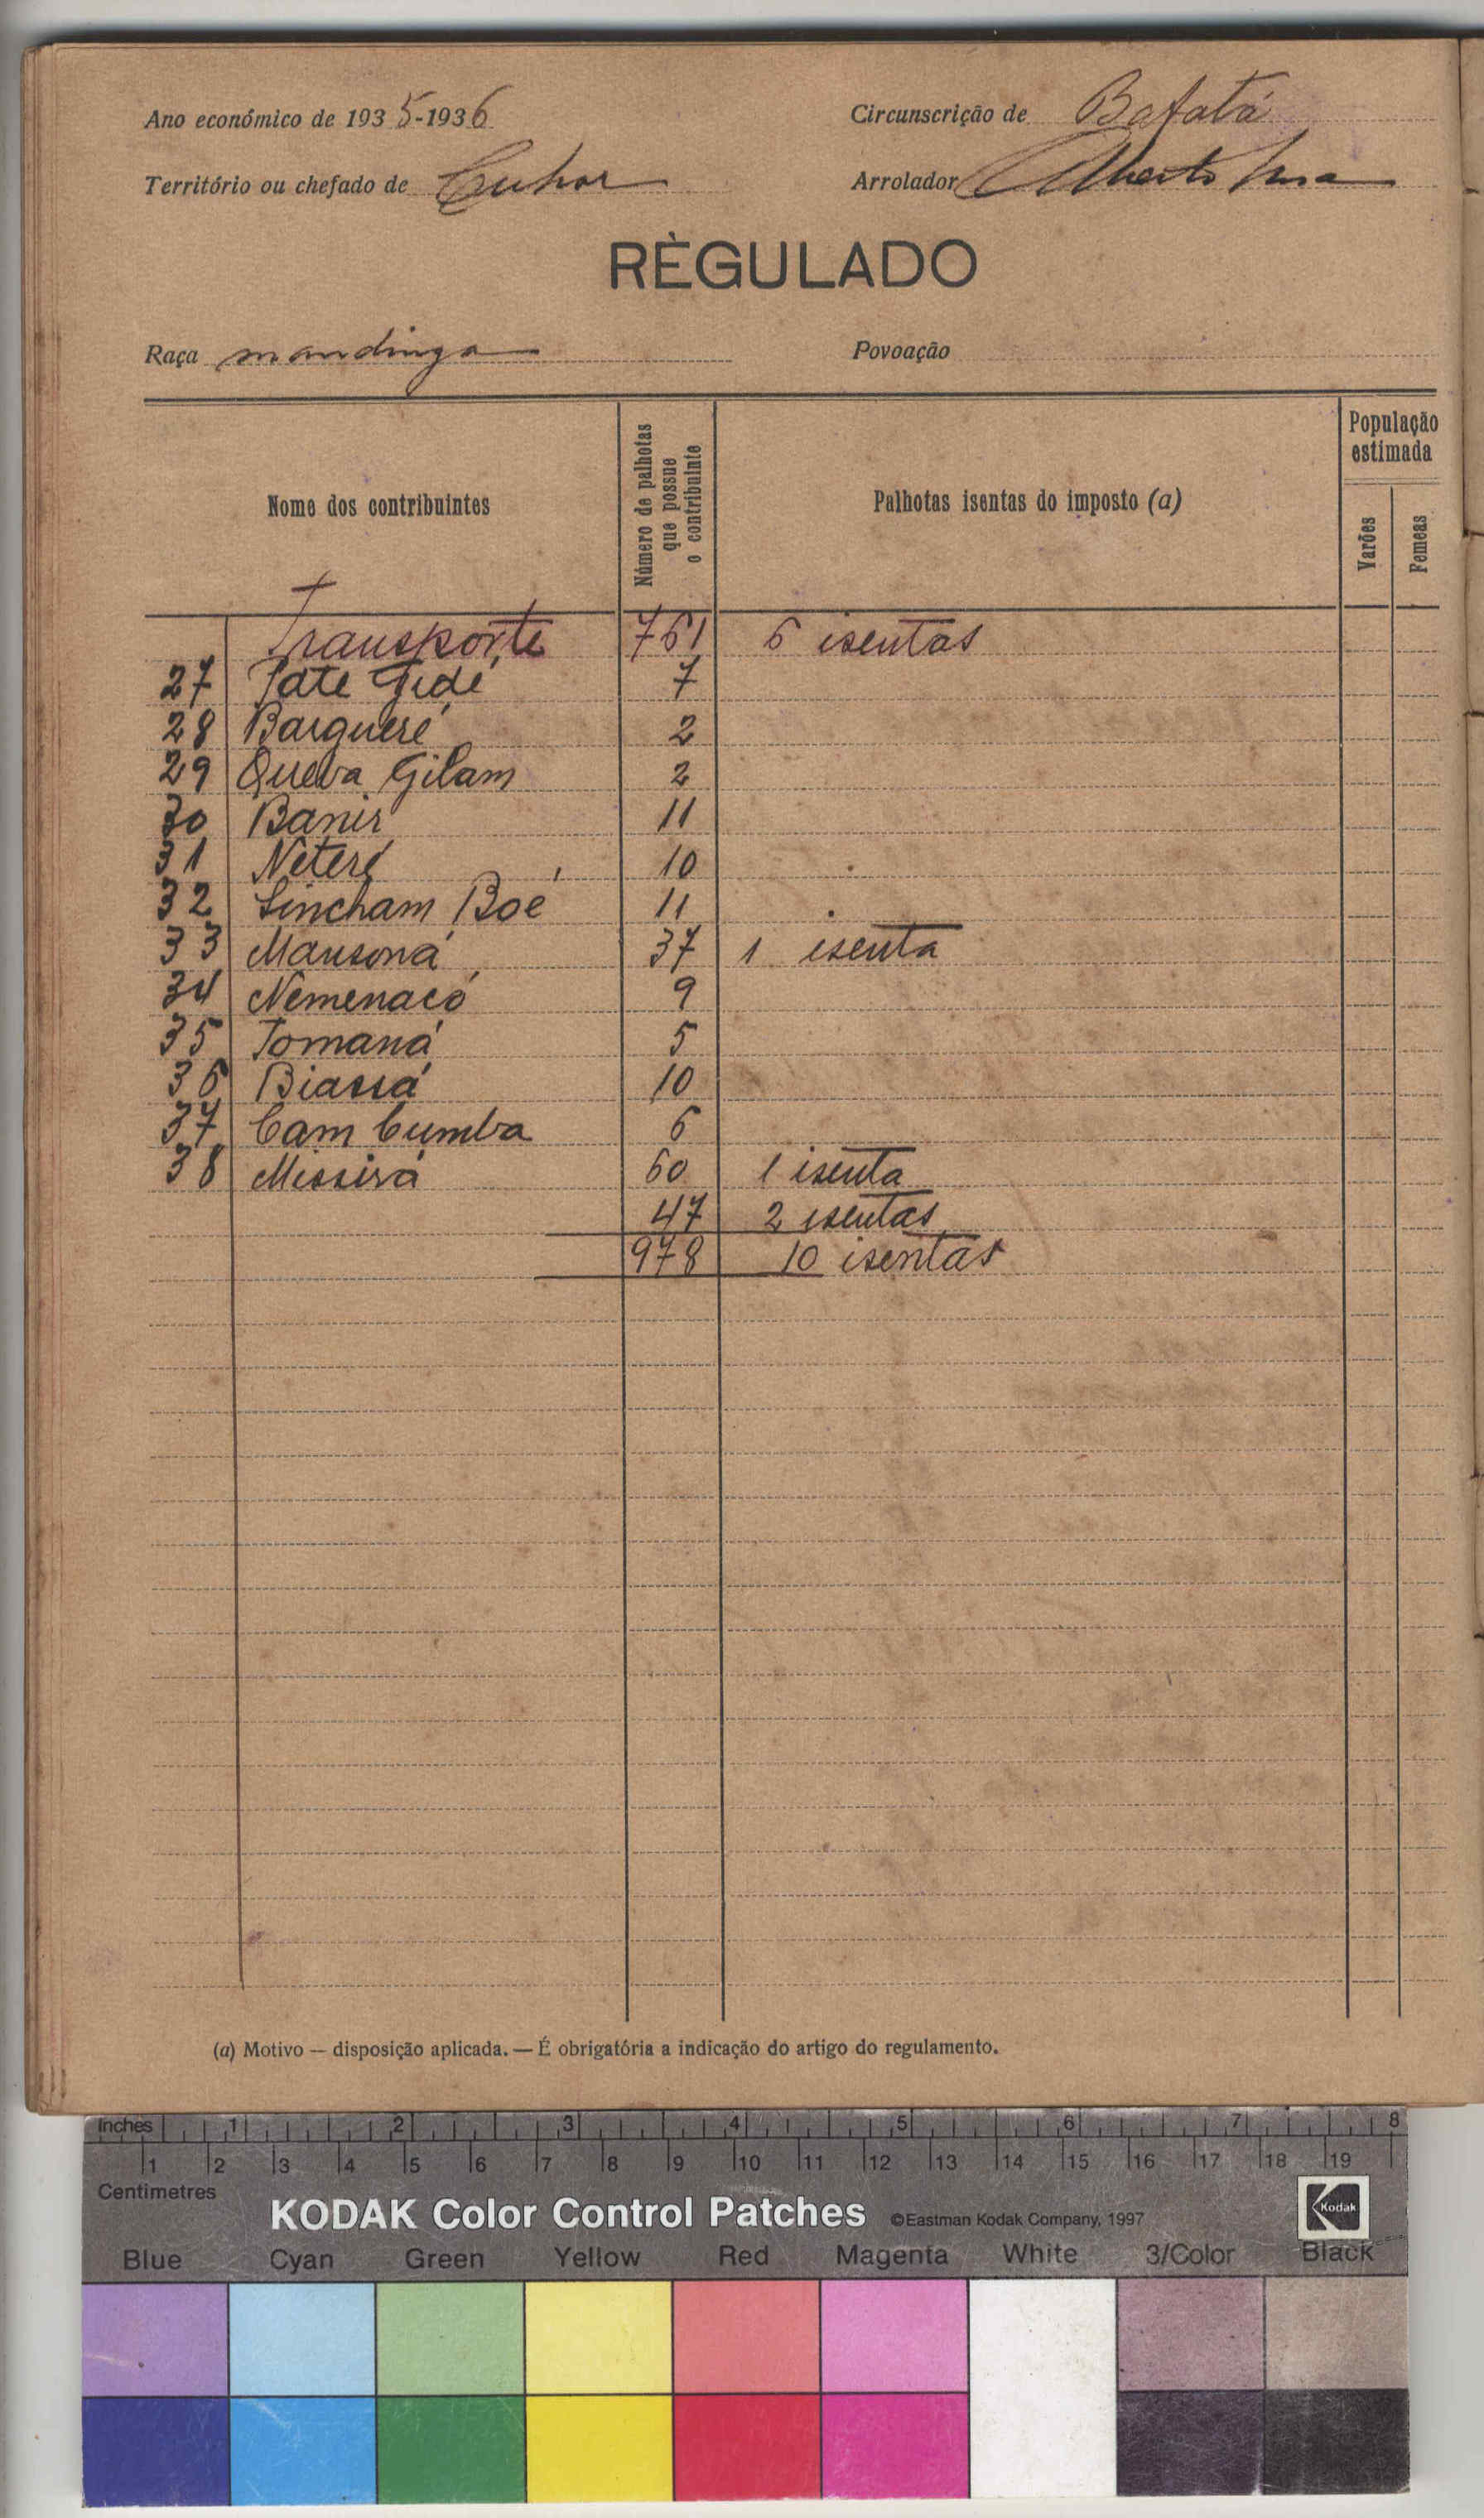 Ano económico de 1935-1936
Circunscrição de Bafatá
Território ou chefado de Cuhor
Arrolador Alberto
RÈGULADO
Raça mandinga
Povoação
Nome dos contribuintes
Número de palhotas que possue o contribuinte
Palhotas isentas do imposto (a)
População estimada
Varões
Femeas
Transporte 761 6 isentas
27 Jate Gidé 7
28 Bargueré 2
29 Queba Gilam 2
30 Banir 11
31 Neteré 10
32 Sincham Boé 11
33 Mansoná 37 1 isenta
34 Nemenacó 9
35 Tomaná 5
36 Biassá 10
37 Cam Cumba 6
38 Missirá 60 1 isenta
47 2 isentas
978 10 isentas
(a) Motivo — disposição aplicada. — É obrigatória a indicação do artigo do regulamento.
Inches 1 2 3 4 5 6 7 8
1 2 3 4 5 6 7 8 9 10 11 12 13 14 15 16 17 18 19
Centimetres
KODAK Color Control Patches ©Eastman Kodak Company, 1997 Kodak
Blue Cyan Green Yellow Red Magenta White 3/Color Black